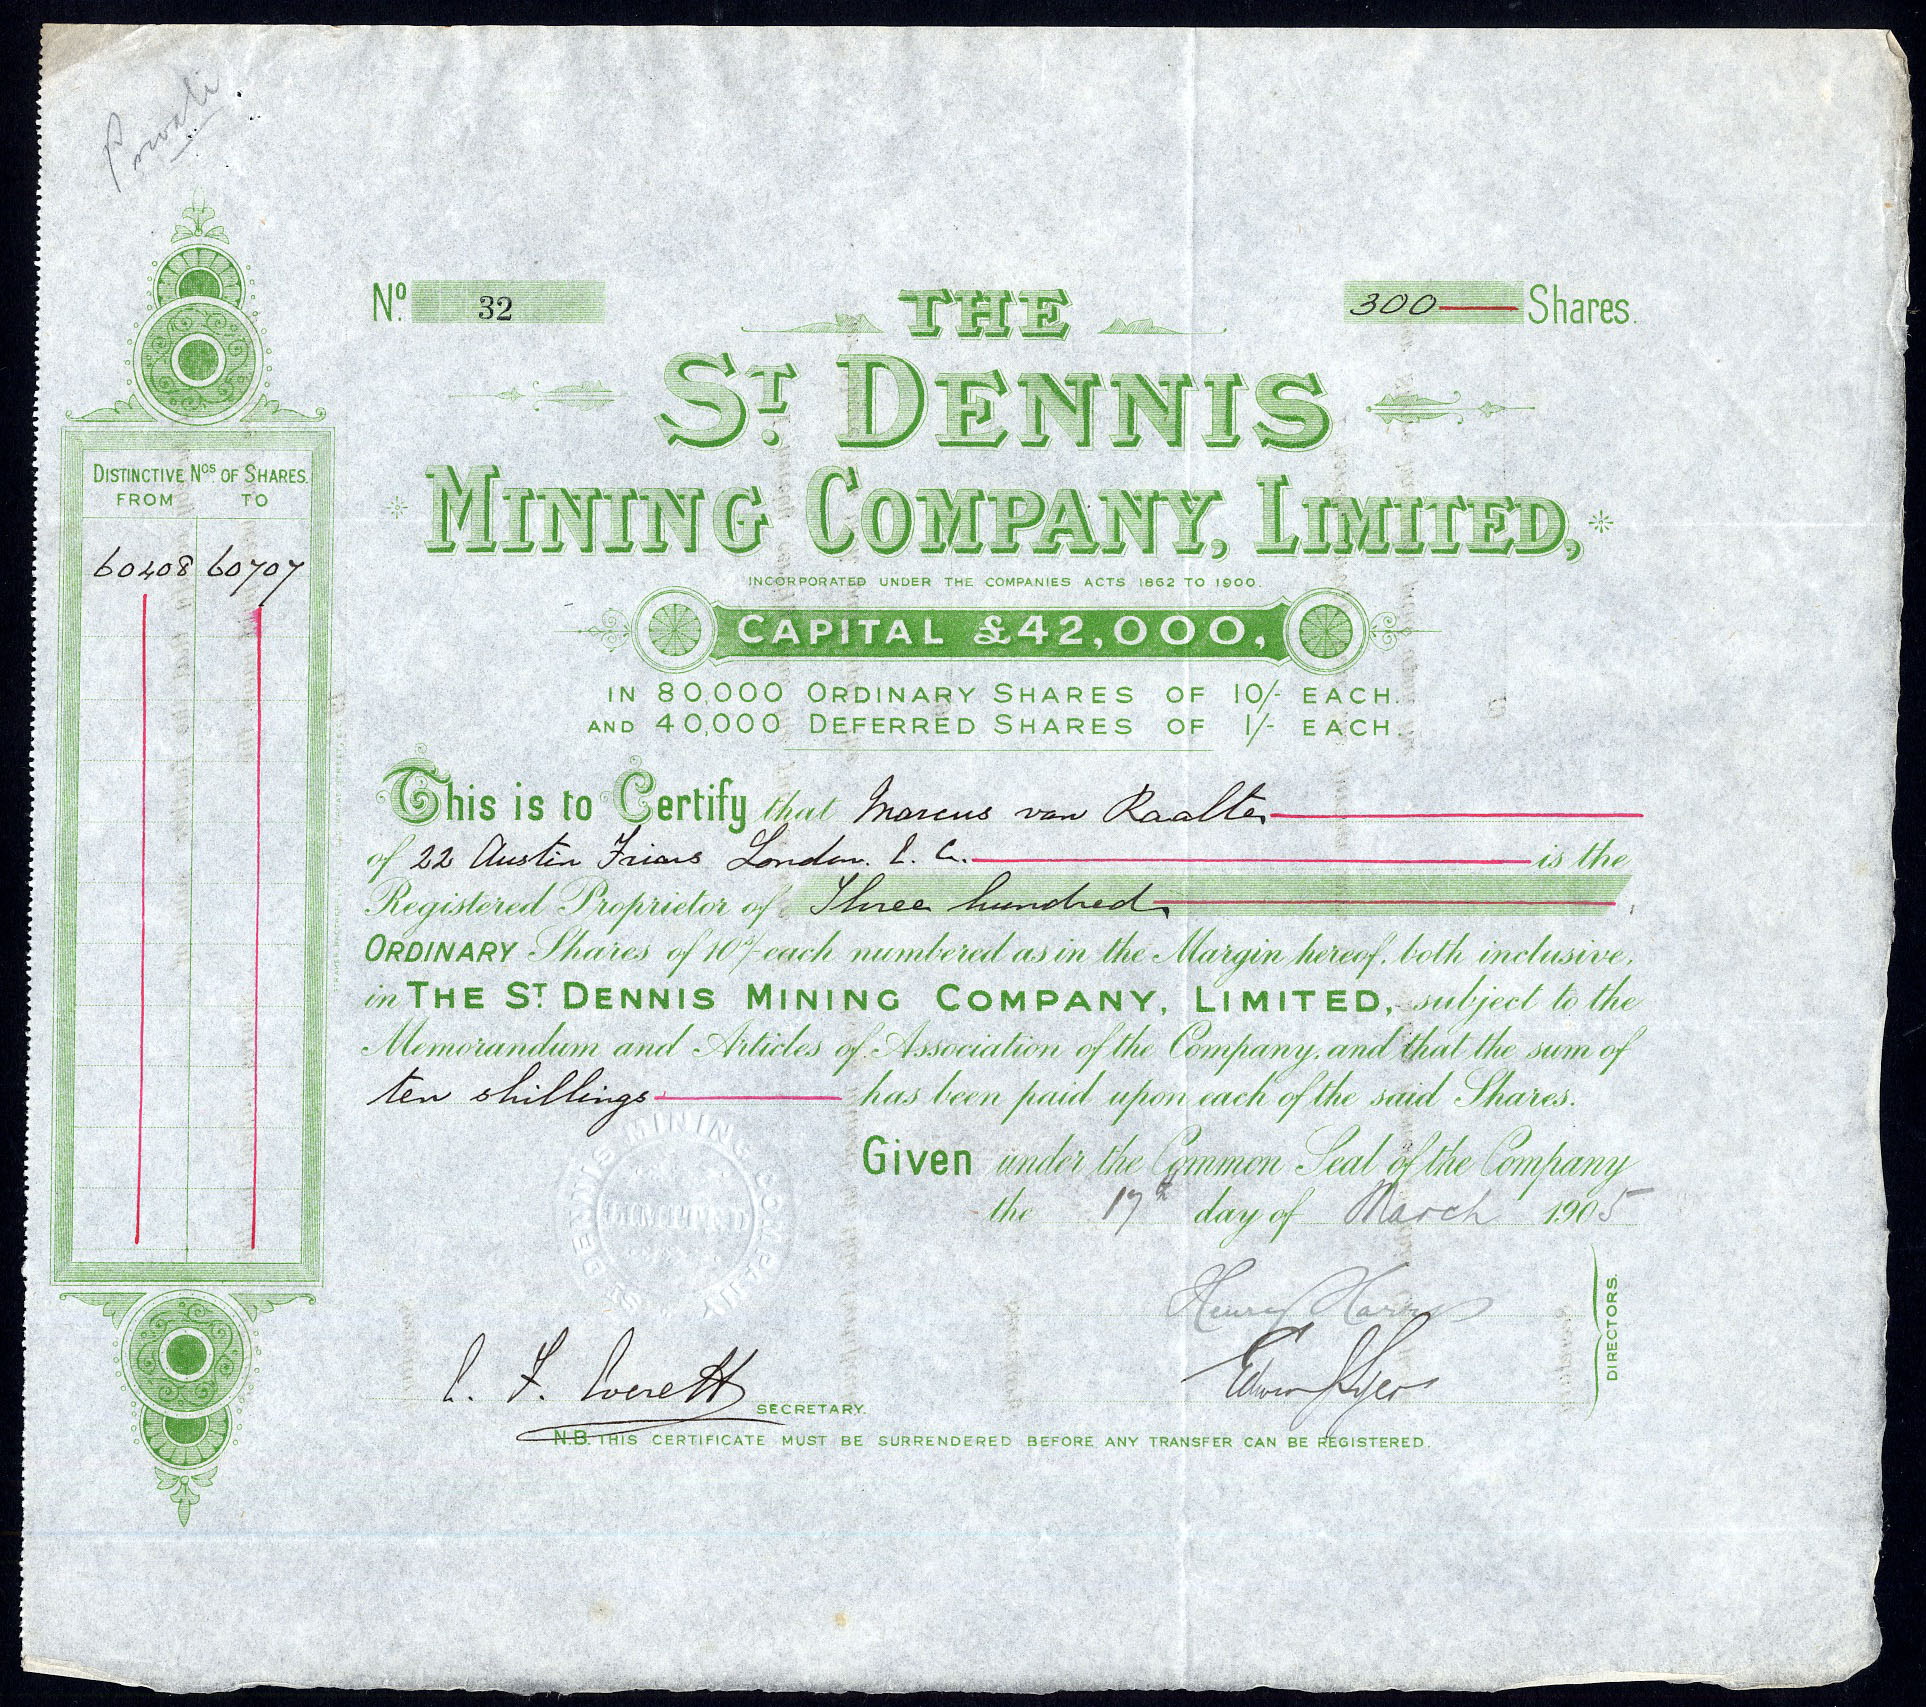 Private
No. 32
300 Shares.
THE
ST. DENNIS
MINING COMPANY, LIMITED,
INCORPORATED UNDER THE COMPANIES ACTS 1862 TO 1900.
CAPITAL £42,000,
IN 80,000 ORDINARY SHARES OF 10/- EACH.
AND 40,000 DEFERRED SHARES OF 1/- EACH.
DISTINCTIVE Nos. OF SHARES.
FROM TO
60408 60707
This is to Certify that Marcus van Raalte
of 22 Austin Friars London. E. C. is the
Registered Proprietor of Three hundred
ORDINARY Shares of 10s/- each numbered as in the Margin hereof, both inclusive,
in THE ST. DENNIS MINING COMPANY, LIMITED, subject to the
Memorandum and Articles of Association of the Company, and that the sum of
ten shillings has been paid upon each of the said Shares.
Given under the Common Seal of the Company
the 17th day of March 1905
ST DENNIS MINING COMPANY
LIMITED
Henry Harris
Edwin
DIRECTORS.
E. F. Everett
SECRETARY.
N.B. THIS CERTIFICATE MUST BE SURRENDERED BEFORE ANY TRANSFER CAN BE REGISTERED.